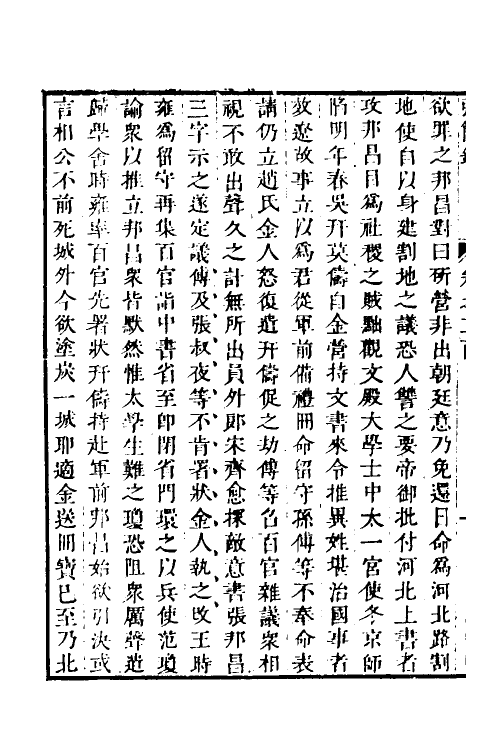 欲罪之邦昌對曰斫營非出朝廷意乃免還曰命爲河北路割
地使自以身建割地之議恐人讐之要帝御批付河北上書者
攻邦昌目爲社稷之賊黜觀文殿大學士中太一宮使冬京師
陷明年春吳幵莫儔自金營持文書來令推異姓堪治國事者
效邀故事立以爲君從軍前備禮冊命留守孫傅等不奉命表
請仍立趙氏金人怒復遣幵儔促之劫傅等召百官雜議衆相
視不敢出聲久之計無所出員外郞宋齊愈探敵意書張邦昌
三字示之遂定議傅及張叔夜等不肯署狀金人執之改王時
雍爲留守再集百官詣中書省至卽閉省門環之以兵使范瓊
諭衆以推立邦昌衆皆默然惟太學生難之瓊恐阻衆厲聲遣
歸學舍時雍率百官先署狀幵儔持赴軍前邦昌始欲引決或
言相公不前死城外今欲塗炭一城耶適金送冊寶已至乃北